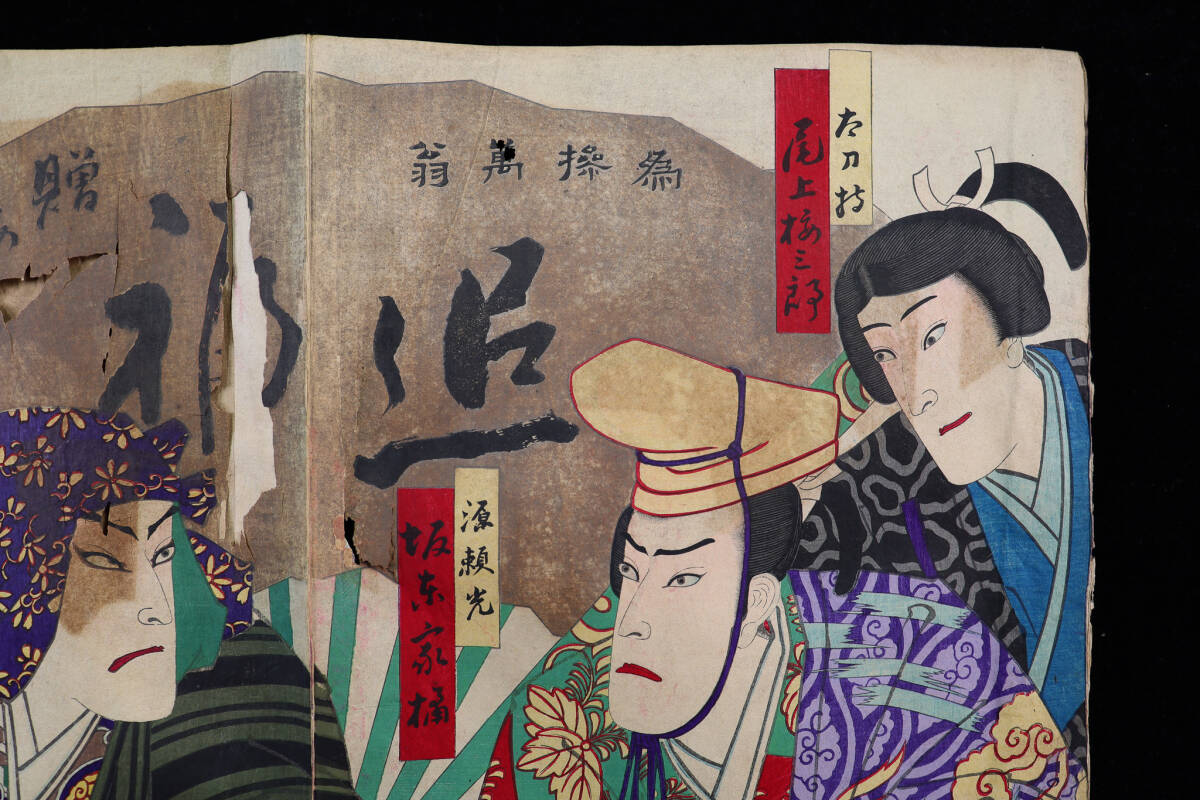 太刀持
尾上梅三郎
為操萬翁
追福
贈
源頼光
坂東家橘